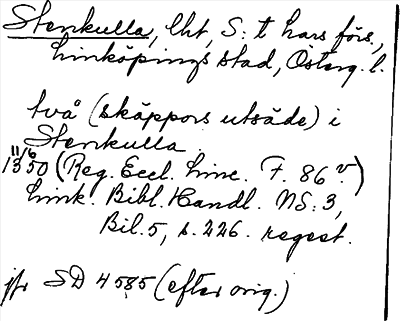 Stenkulla, lht, S:t Lars förs.,
Linköpings stad, Österg. l.
två (skäppors utsäde) i
Stenkulla
11/6
1350 (Reg. Eccl. Linc. F. 86 v.)
Link. Bibl. Handl. NS: 3,
Bil. 5, s. 226. regest.
jfr SD 4585 (efter orig.)